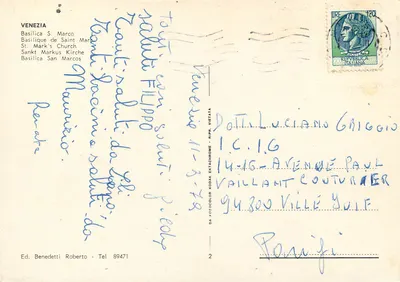 VENEZIA
Basilica S. Marco
Basilique de Saint Marc
St. Mark's Church
Sankt Markus Kirche
Basilica San Marcos
saluti FILIPPO
Tanti saluti da
Tanti bacini e saluti da
Maurizio.
Renata
Venezia 11-3-72
DOTT. LUCIANO GRIGGIO
I.C.I.G
14-16-AVENUE PAUL
VAILLANT COUTURIER
94800 VILLE JUIF
Parigi
2
Ed. Benedetti Roberto - Tel 89471